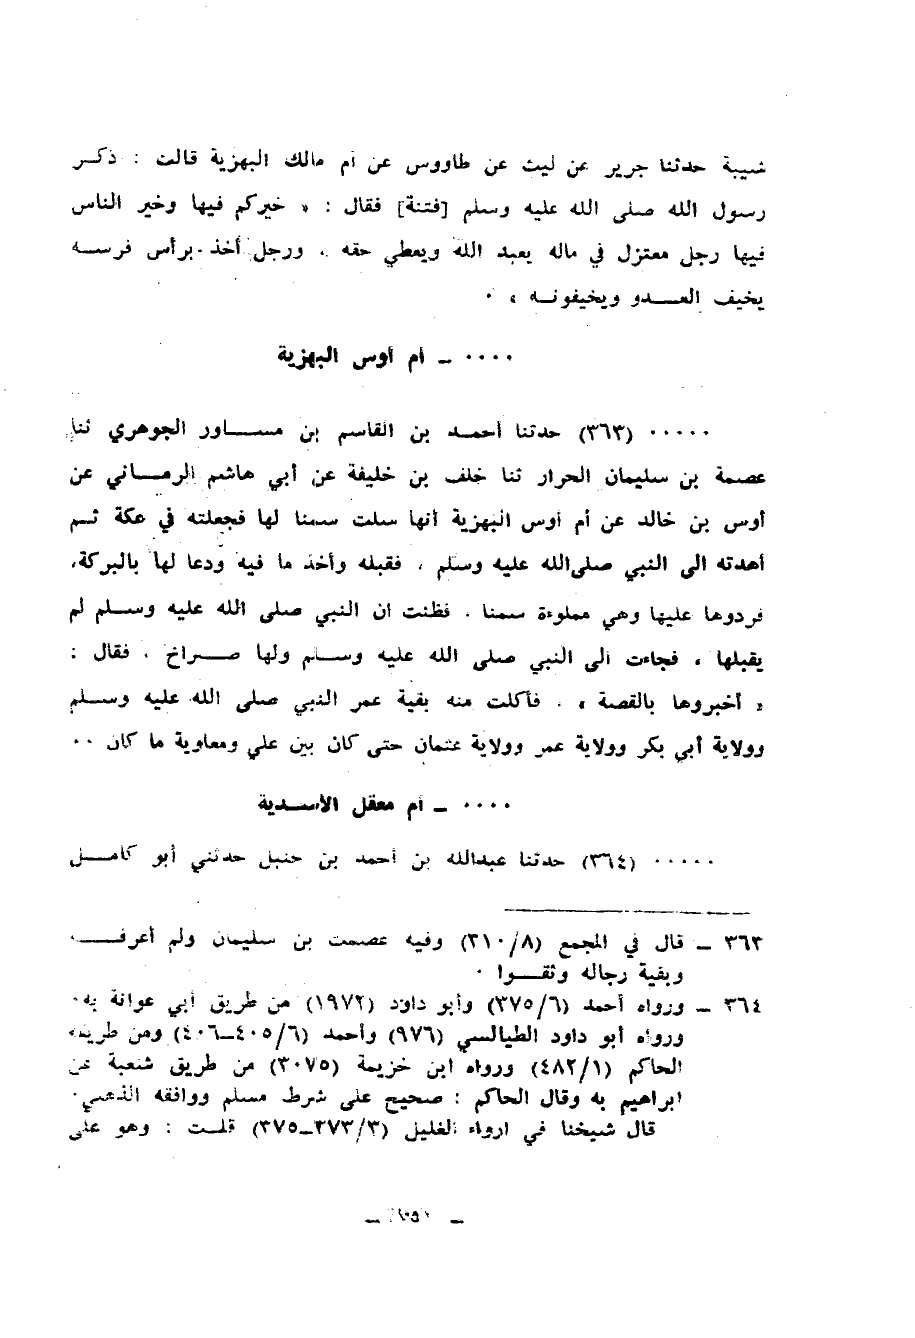 شيبة حدثنا جرير عن ليث عن طاووس عن أم مالك البهزية قالت : ذكر
رسول الله صلى الله عليه وسلم [فتنة] فقال : « خيركم فيها وخير الناس
فيها رجل معتزل في ماله يعبد الله ويعطي حقه ، ورجل أخذ برأس فرسه
يخيف العدو ويخيفونه » ٠
٠٠٠٠ ـ أم أوس البهزية
٠٠٠٠٠ (٣٦٣) حدثنا أحمد بن القاسم بن مساور الجوهري ثنا
عصمة بن سليمان الحرار ثنا خلف بن خليفة عن أبي هاشم الرماني عن
أوس بن خالد عن أم أوس البهزية أنها سلت سمنا لها فجعلته في عكة ثم
أهدته الى النبي صلى الله عليه وسلم ، فقبله وأخذ ما فيه ودعا لها بالبركة،
فردوها عليها وهي مملوءة سمنا ، فظنت ان النبي صلى الله عليه وسلم لم
يقبلها ، فجاءت الى النبي صلى الله عليه وسلم ولها صراخ ، فقال :
« أخبروها بالقصة » ، فأكلت منه بقية عمر النبي صلى الله عليه وسلم
وولاية أبي بكر وولاية عمر وولاية عثمان حتى كان بين علي ومعاوية ما كان ٠٠
٠٠٠٠ ـ أم معقل الأسدية
٠٠٠٠٠ (٣٦٤) حدثنا عبدالله بن أحمد بن حنبل حدثني أبو كامل
٣٦٣ ـ قال في المجمع (٣١٠/٨) وفيه عصمت بن سليمان ولم أعرفه
وبقية رجاله وثقوا ٠
٣٦٤ ـ ورواه أحمد (٣٧٥/٦) وأبو داود (١٩٧٢) من طريق أبي عوانة به٠
ورواه أبو داود الطيالسي (٩٧٦) وأحمد (٤٠٥/٦ـ٤٠٦) ومن طريقه
الحاكم (٤٨٢/١) ورواه ابن خزيمة (٣٠٧٥) من طريق شعبة عن
ابراهيم به وقال الحاكم : صحيح على شرط مسلم ووافقه الذهبي٠
قال شيخنا في ارواء الغليل (٣٧٣/٣ـ٣٧٥) قلت : وهو على